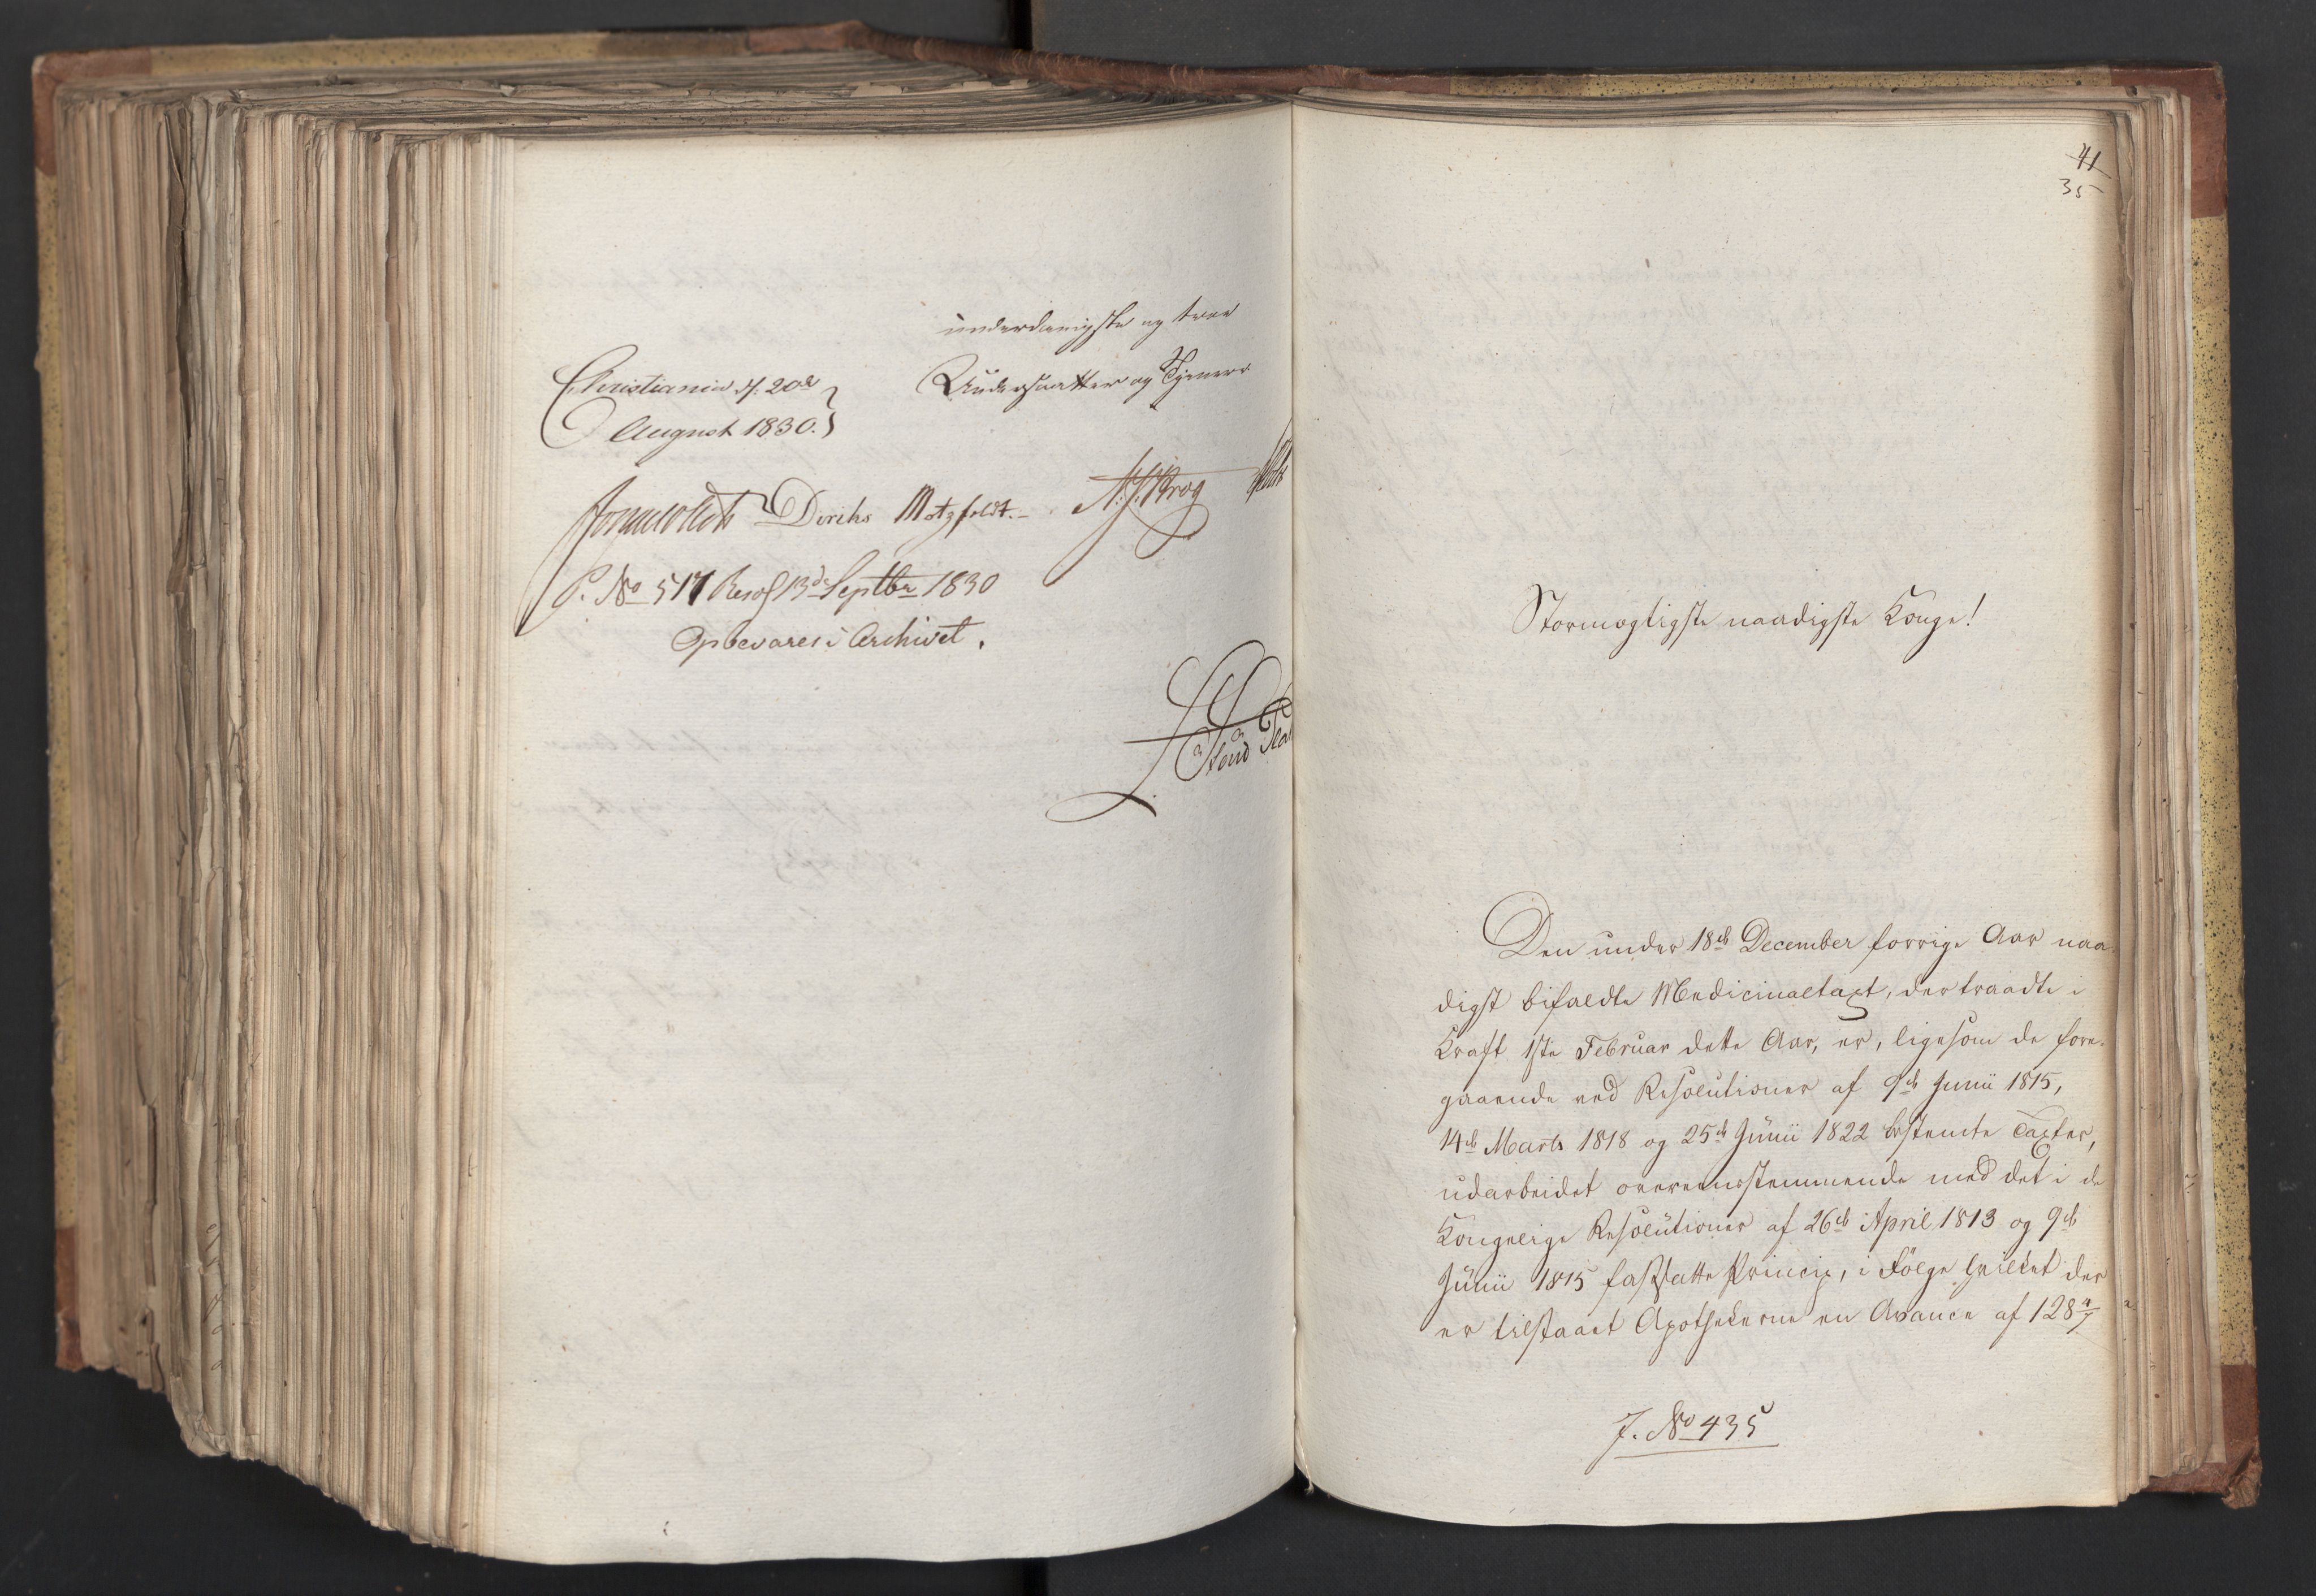 underdanigste og troe
Undersaatter og Tjenere
Christiania d. 20de
August 1830.
Jonas Collett Diriks Motzfeldt. A. J. Krog
P. No 517 Resol 13de Septbr 1830
Opbevares i Archivet.
41
35
Stormægtigste naadigste Konge!
Den under 18de December forrige Aar naa-
digst bifaldte Medicinaltaxt, der traadte i
Kraft 1ste Februar dette Aar, er, ligesom de fore-
gaaende ved Resolutioner af 9de Junii 1815,
14de Marts 1818 og 25de Junii 1822 bestemte Taxter,
udarbeidet overeensstemmende med det i de
Kongelige Resolutioner af 26de April 1813 og 9de
Junii 1815 fastsatte Princip, i Følge hvilket der
er tilstaaet Apothekerne en Avance af 128 4/7
J. No 435